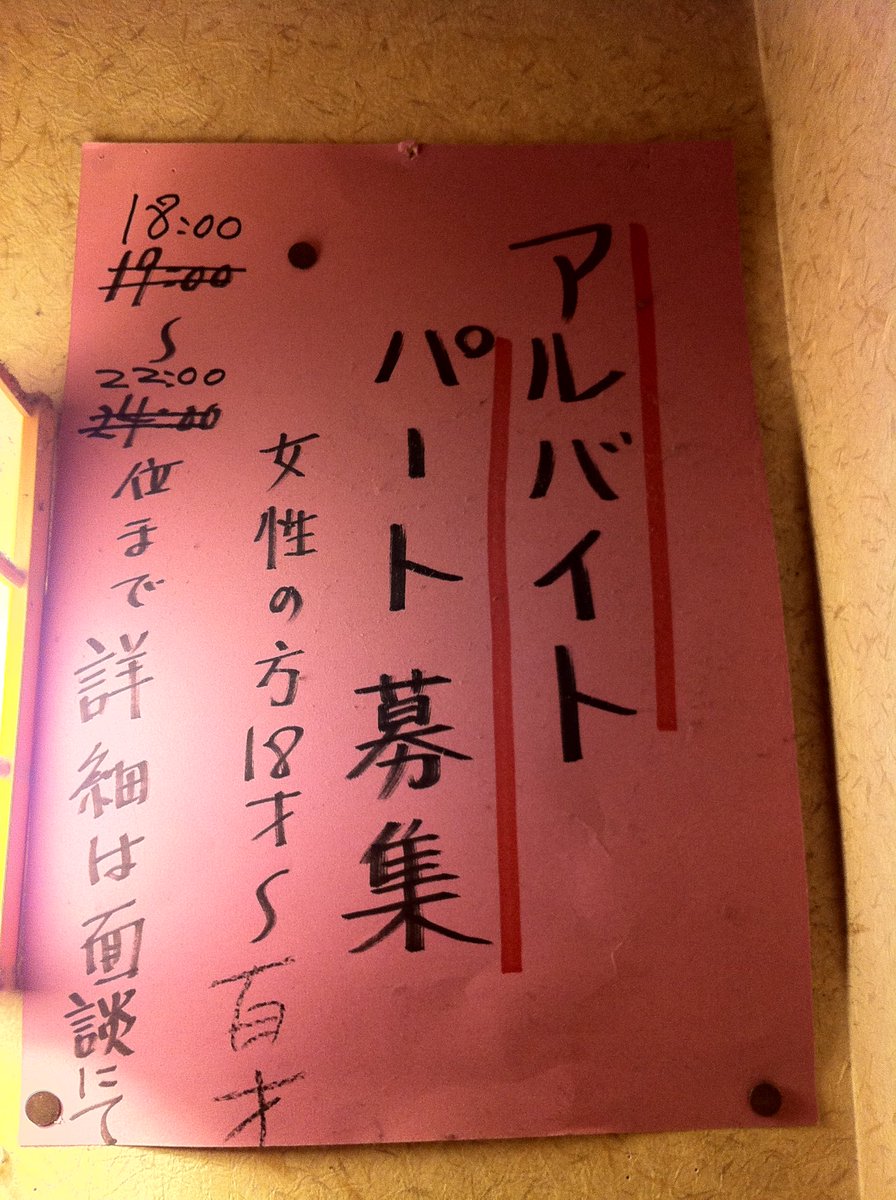 アルバイト
パート募集
女性の方18才～百才
18:00
19:00
～
22:00
24:00
位まで詳細は面談にて